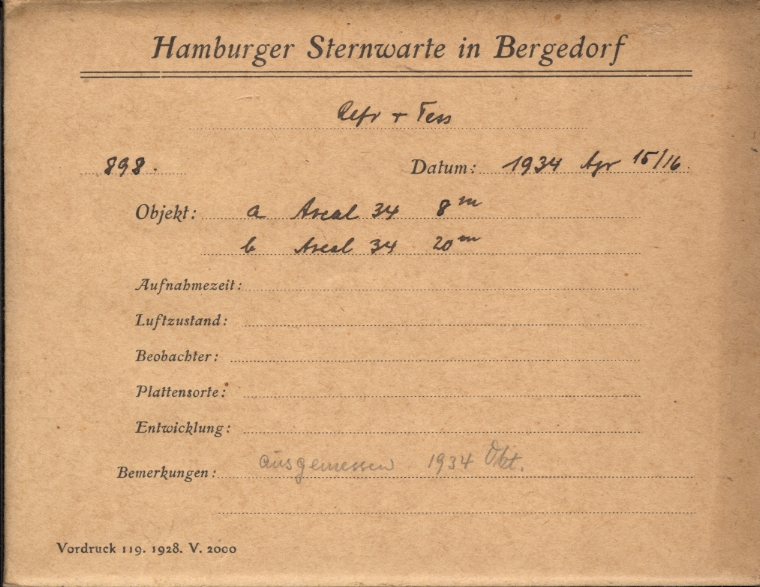 Hamburger Sternwarte in Bergedorf
Refr + Tess
898. Datum: 1934 Apr 15/16
Objekt: a Areal 34 8m
b Areal 34 20m
Aufnahmezeit:
Luftzustand:
Beobachter:
Plattensorte:
Entwicklung:
Bemerkungen: ausgemessen 1934 Okt.
Vordruck 119. 1928. V. 2000